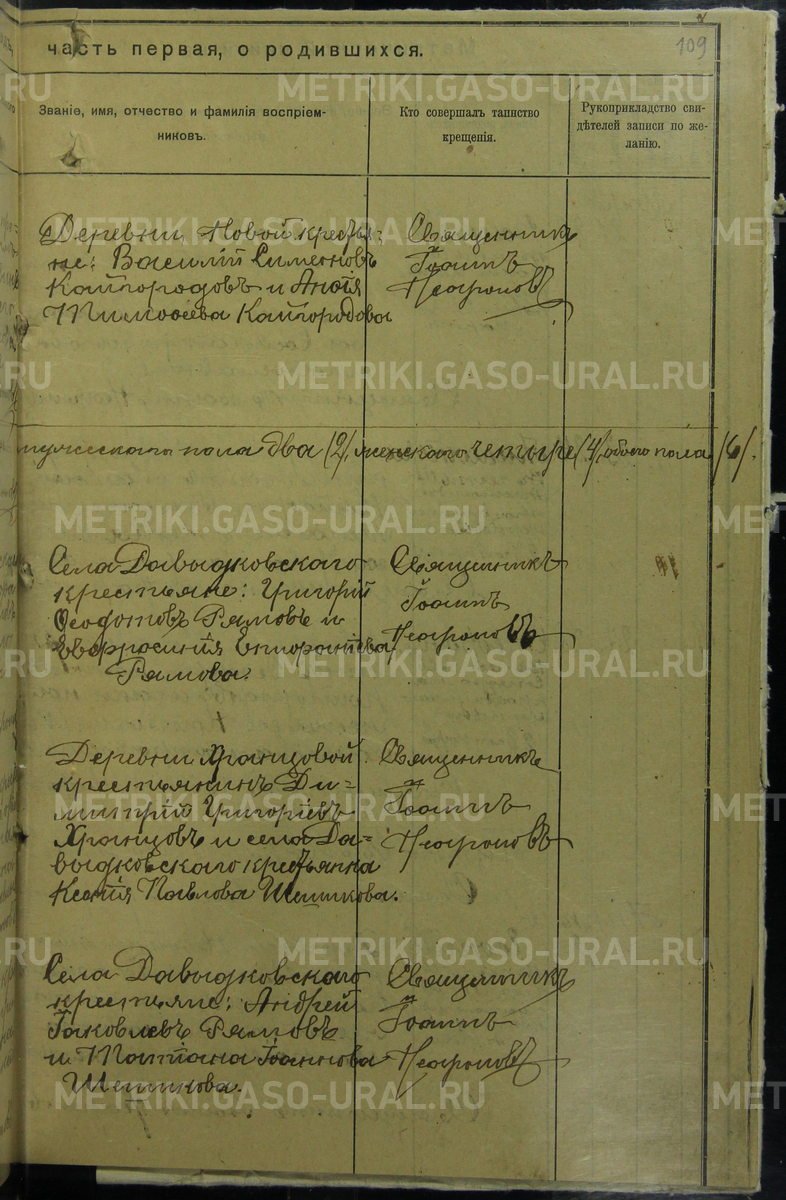 часть первая, о родившихся.
109
Званіе, имя, отчество и фамилія воспріем-
никовъ.
Кто совершалъ таинство
крещенія.
Рукоприкладство сви-
дѣтелей записи по же-
ланію.
Деревни Новой крестья-
не: Василій Симеоновъ
Кайгородовъ и
Тимоѳеева Кайгородова
Священникъ
Іоаннъ
мужескаго пола два (2), женскаго четыре (4), обоего пола (6).
Села Давыдковскаго
крестьяне: Григорій
Ѳеодотовъ Рямовъ и
Евфросинія
Рямова.
Священникъ
Іоаннъ
Деревни Хранцовой
крестьянинъ Ди-
митрій Григоріевъ
Хранцовъ и села Да-
выдковскаго крестьянка
Ксенія Павлова Шешкова.
Священникъ
Іоаннъ
Села Давыдковскаго
крестьяне: Андрей
Іаковлевъ Рямовъ
и Татіана Іоаннова
Шешкова.
Священникъ
Іоаннъ
METRIKI.GASO-URAL.RU